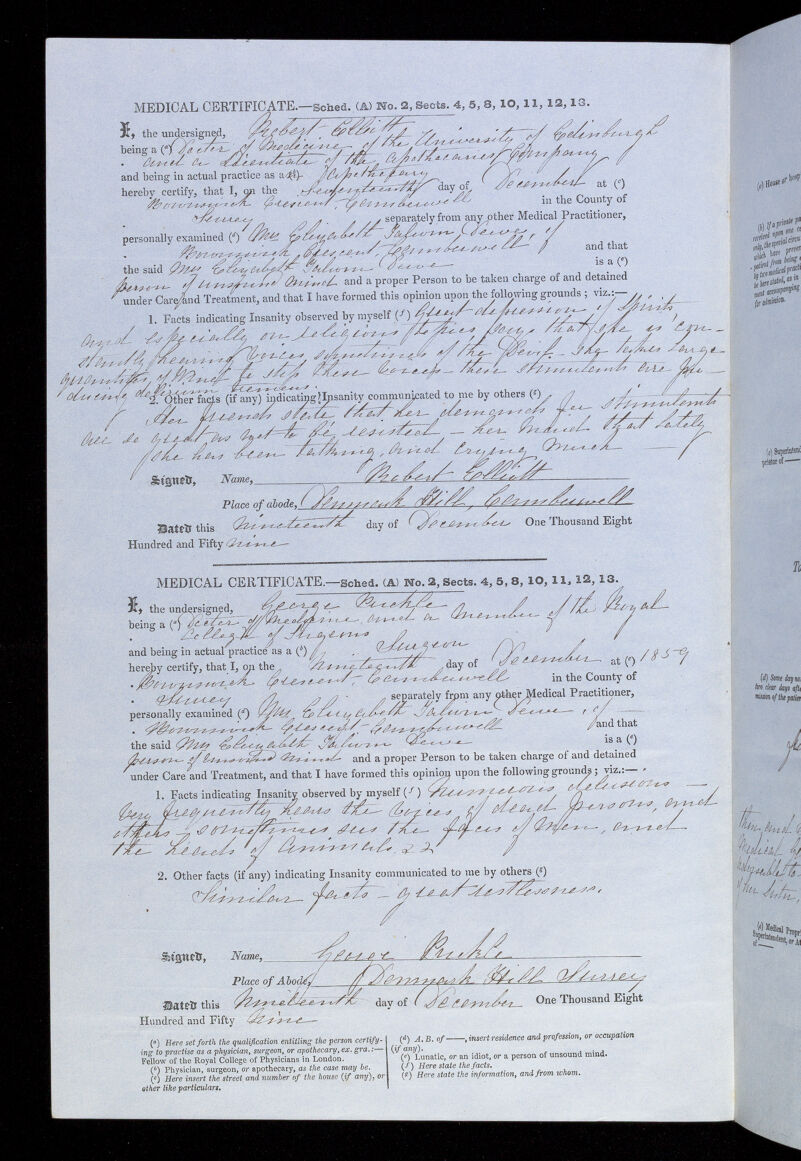 MEDICAL CERTIFICATE.—Sched. (A) No. 2, Sects. 4, 5, 8, 10, 11, 12, 13.
I, the undersigned, Robert Elliott
being a (a) Doctor of Medicine of the University of Edinburgh
and a Licentiate of the Apothecaries Company
and being in actual practice as a (b) Apothecary
hereby certify, that I, on the Seventeenth day of December at (c)
Crescent, Camberwell in the County of
Surrey separately from any other Medical Practitioner,
personally examined (d) Mrs Elizabeth Dewe, of
Crescent, Camberwell and that
the said Mrs Elizabeth Dewe is a (e)
person of unsound mind and a proper Person to be taken charge of and detained
under Care and Treatment, and that I have formed this opinion upon the following grounds; viz.:—
1. Facts indicating Insanity observed by myself (f) Great depression of Spirits,
and especially on religious topics says that she is con-
stantly hearing voices, sometimes of the Devil. She takes large
quantities of to stop these voices — these stimulants are pro-
ducing delirium tremens.
2. Other facts (if any) indicating Insanity communicated to me by others (g)
Her friends state that her demands for stimulants
are so great as not to be resisted — her that lately
she has been talking, and crying much
Signed, Name, Robert Elliott
Place of abode, Denmark Hill, Camberwell
Dated this Nineteenth day of December One Thousand Eight
Hundred and Fifty nine
MEDICAL CERTIFICATE.—Sched. (A) No. 2, Sects. 4, 5, 8, 10, 11, 12, 13.
I, the undersigned, George Puckle
being a (a) Doctor of Medicine and a Member of the Royal
College of Surgeons
and being in actual practice as a (b) Surgeon
hereby certify, that I, on the Nineteenth day of December at (c) 1859
Crescent, Camberwell in the County of
Surrey separately from any other Medical Practitioner,
personally examined (d) Mrs Elizabeth Dewe, of
Crescent Camberwell and that
the said Mrs Elizabeth Dewe is a (e)
person of unsound mind and a proper Person to be taken charge of and detained
under Care and Treatment, and that I have formed this opinion upon the following grounds; viz.:—
1. Facts indicating Insanity observed by myself (f) Numerous delusions —
very frequently hears the voices of dead persons, and
others — sometimes sees the faces of men, and
the heads of animals &&
2. Other facts (if any) indicating Insanity communicated to me by others (g)
Similar facts — great restlessness.
Signed, Name, George Puckle
Place of Abode, Denmark Hill Surrey
Dated this Nineteenth day of December One Thousand Eight
Hundred and Fifty Nine
(a) Here set forth the qualification entitling the person certify-
ing to practise as a physician, surgeon, or apothecary, ex. gra.:—
Fellow of the Royal College of Physicians in London.
(b) Physician, surgeon, or apothecary, as the case may be.
(c) Here insert the street and number of the house (if any), or
other like particulars.
(d) A. B. of ——, insert residence and profession, or occupation
(if any).
(e) Lunatic, or an idiot, or a person of unsound mind.
(f) Here state the facts.
(g) Here state the information, and from whom.